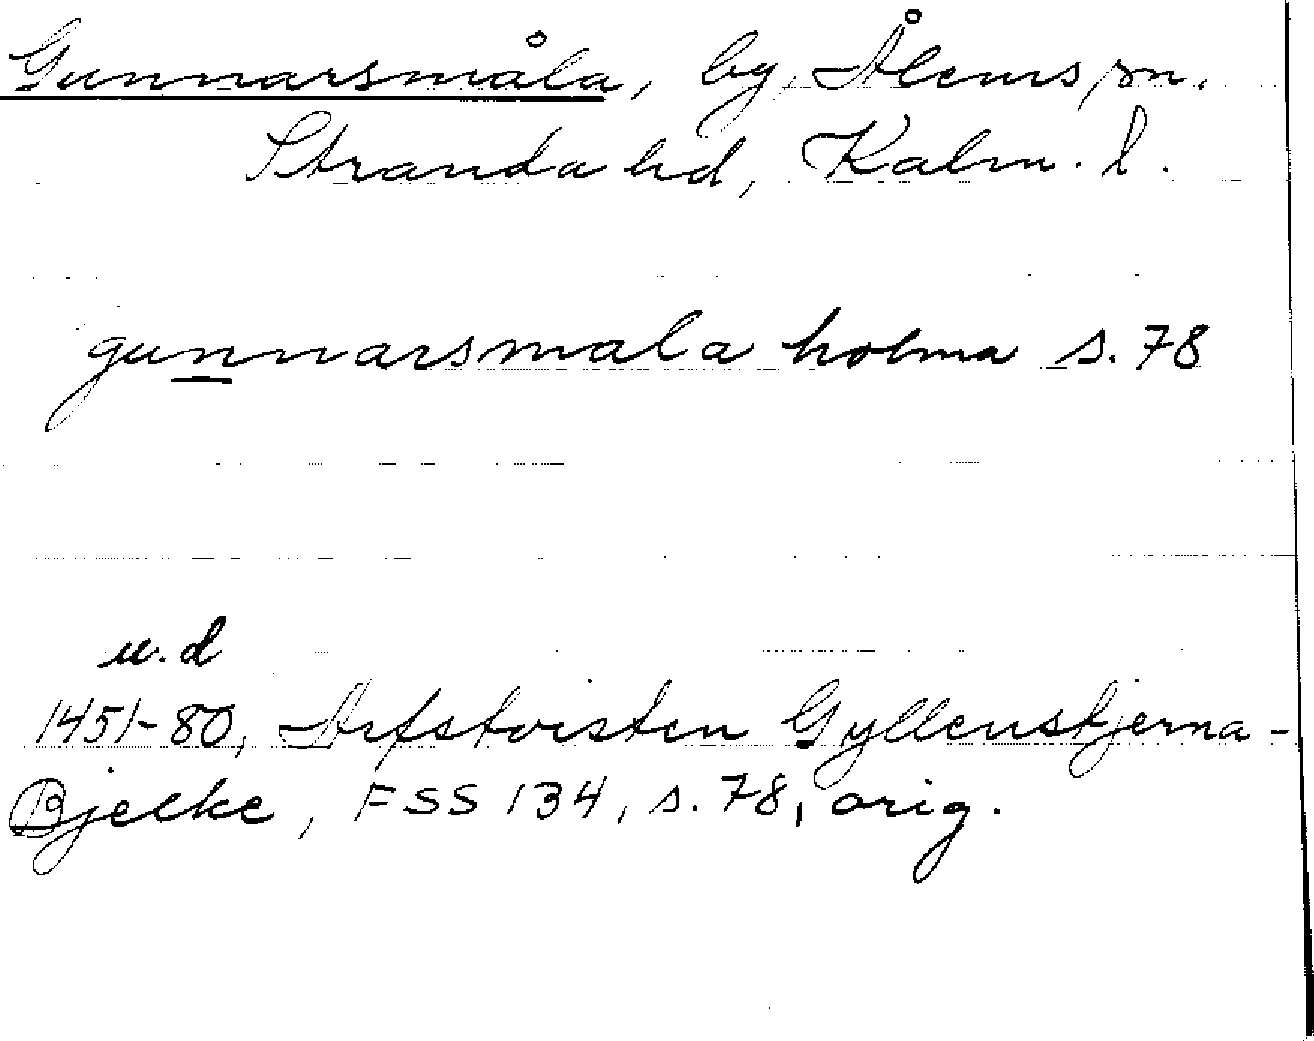 Gunnarsmåla, by, Ålems sn.
Stranda hd, Kalm. l.
gunnarsmala holma s. 78
u.d
1451-80, Arfstvisten Gyllenstjerna-
Bjelke, FSS 134, s. 78, orig.